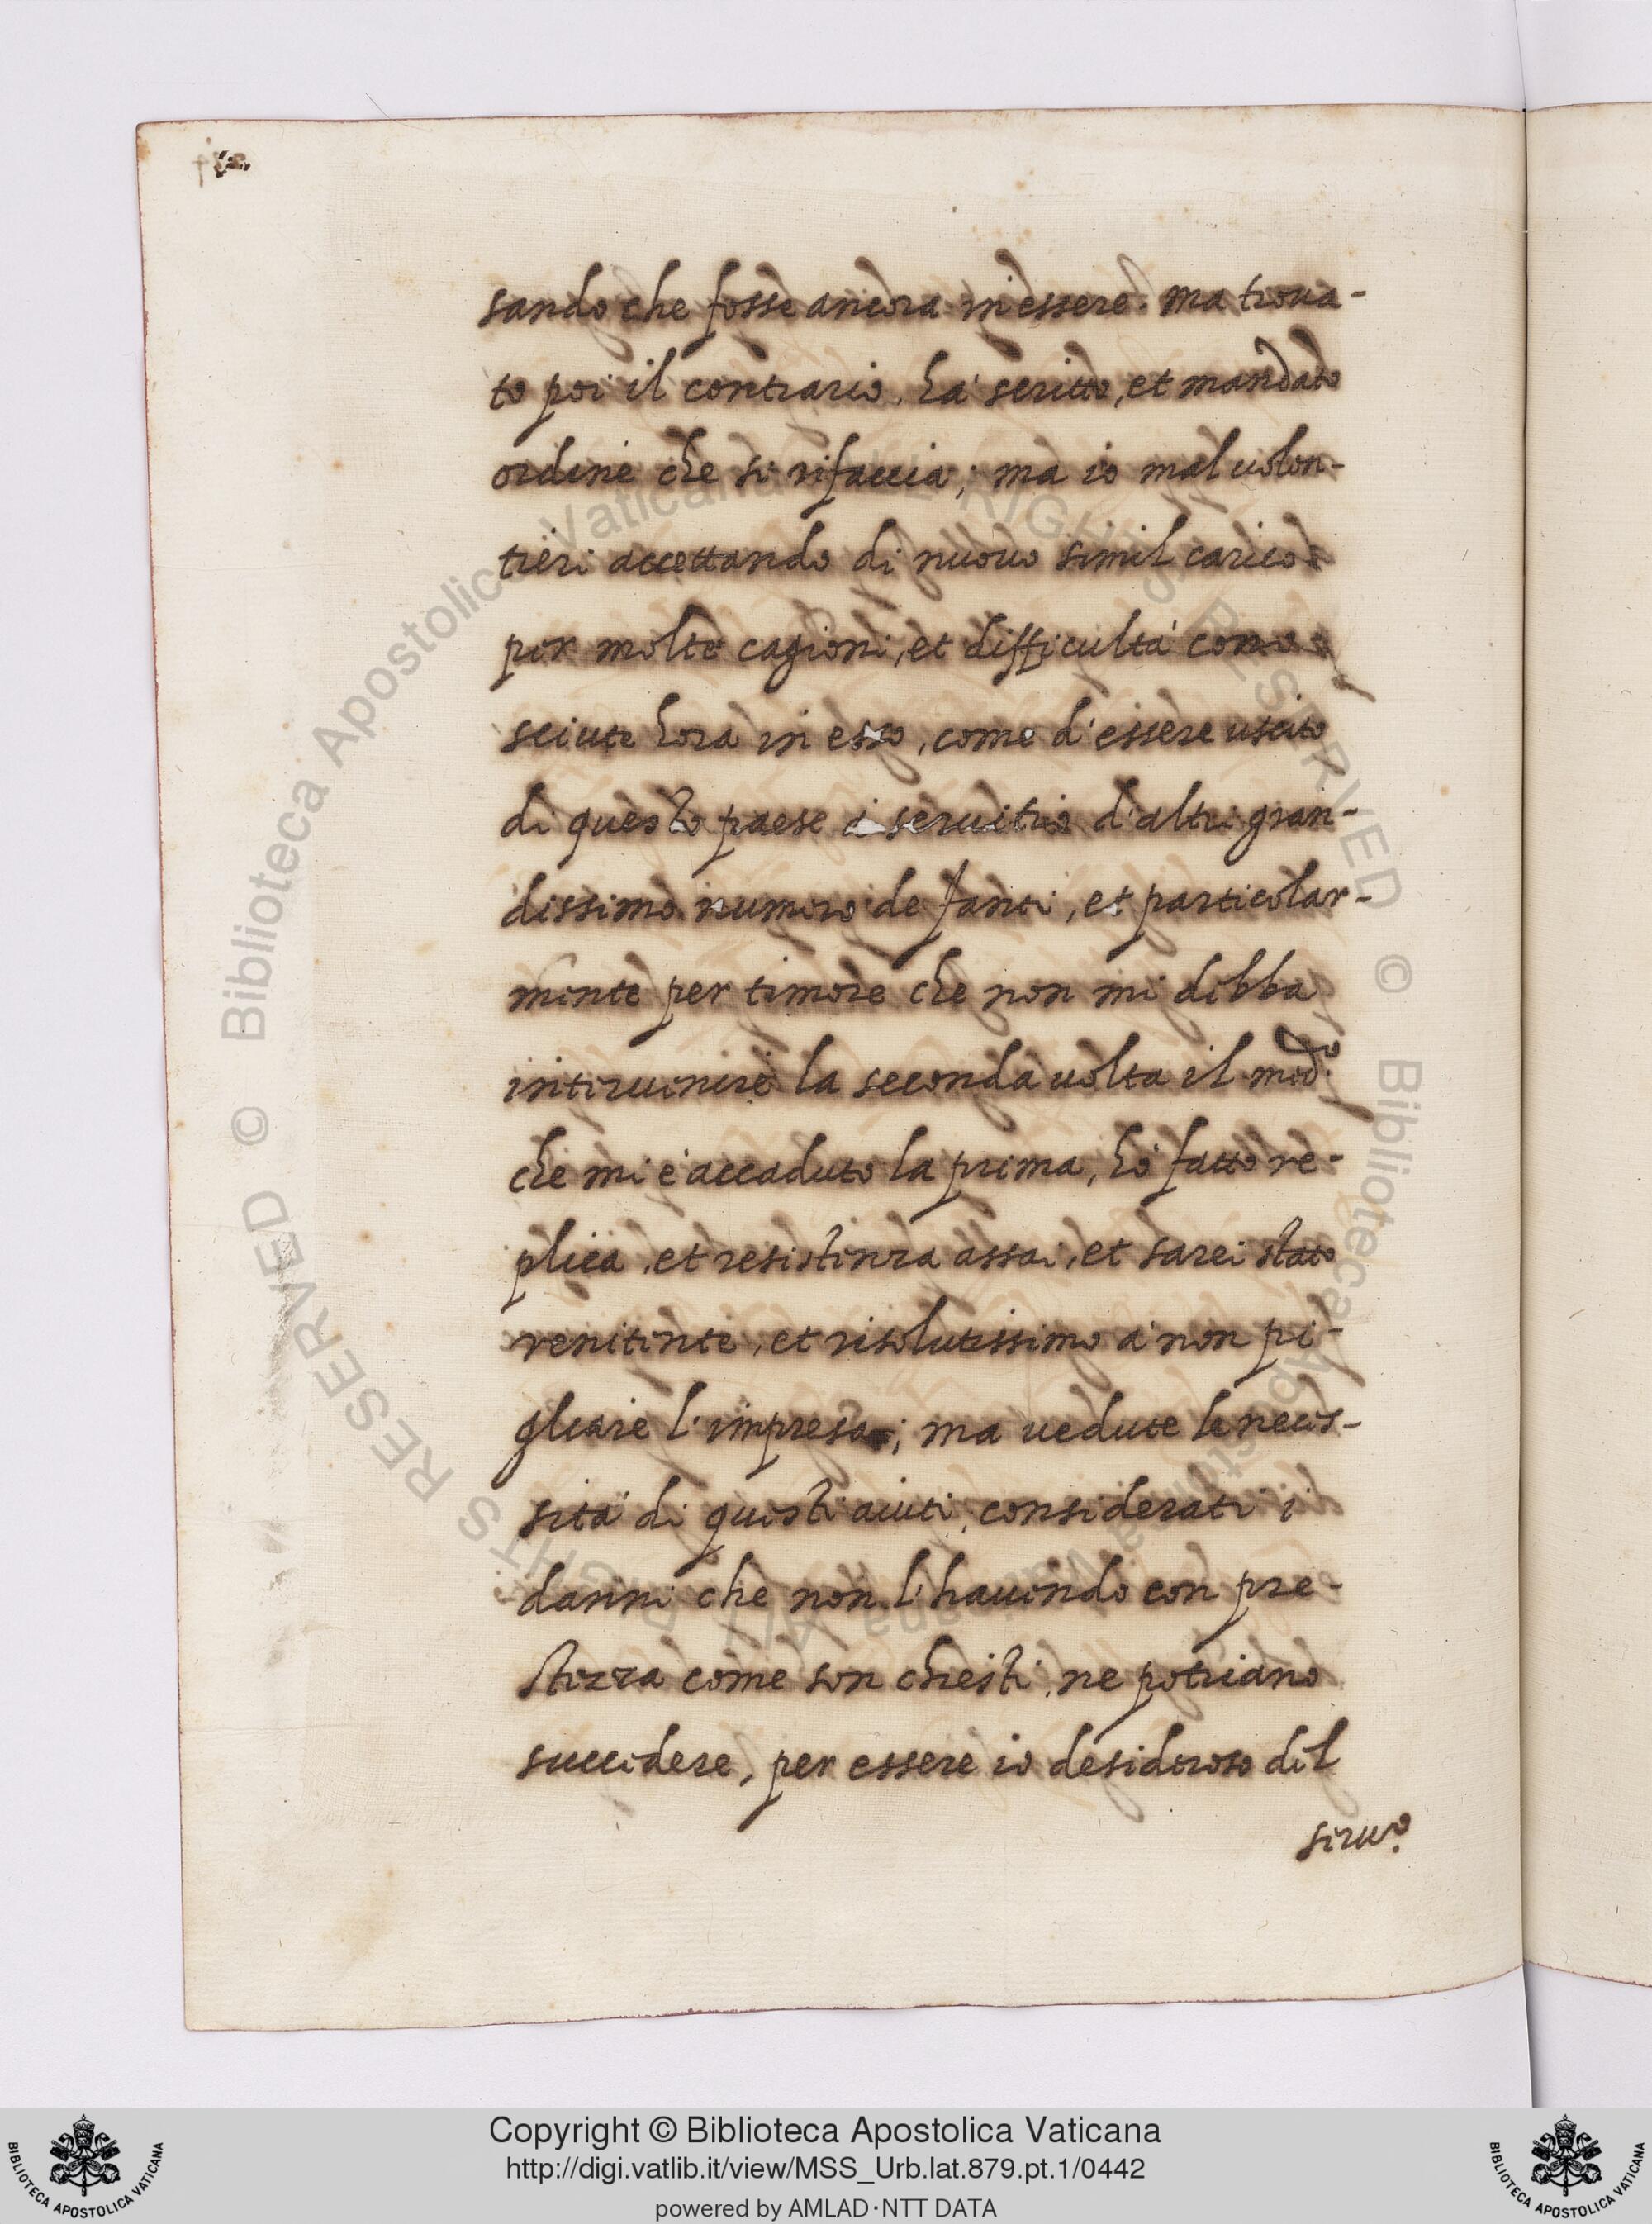 sando che fosse ancora in essere. ma troua-
to poi il contrario, ha' scritto, et mandato
ordine che si rifaccia; ma io mal uolon-
tieri accettando di nuouo simil carico
per molte cagioni, et difficultà cono-
sciute hora in esso, come d'essere uscito
di questo paese à seruitio d'altri gran-
dissimo numero de fanti, et particolar-
mente per timore che non mi debba
interuenire la seconda uolta il med.o
che mi è accaduto la prima, hò fatto re-
plica, et resistenza assai, et sarei stato
renitente, et risolutissimo à non pi-
gliare l'impresa; ma uedute le neces-
sità di questi aiuti, considerati i
danni che non l'hauendo con pre-
stezza come son chiesti, ne potriano
succedere, per essere io desideroso del
seru.o
Copyright © Biblioteca Apostolica Vaticana
http://digi.vatlib.it/view/MSS_Urb.lat.879.pt.1/0442
powered by AMLAD·NTT DATA
BIBLIOTECA APOSTOLICA VATICANA
BIBLIOTECA APOSTOLICA VATICANA
© Biblioteca Apostolica Vaticana ALL RIGHTS RESERVED © Biblioteca Apostolica Vaticana ALL RIGHTS RESERVED